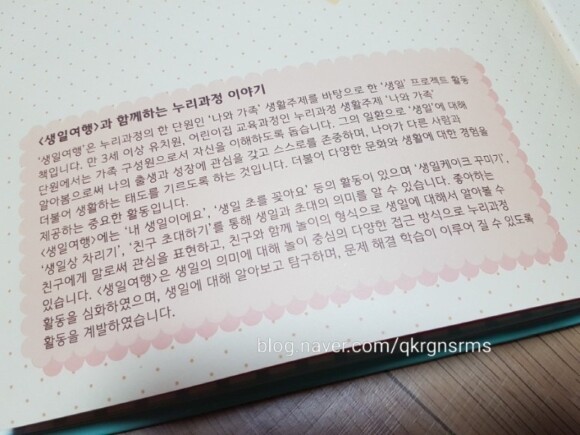 <생일여행>과 함께하는 누리과정 이야기
'생일여행'은 누리과정의 한 단원인 '나와 가족' 생활주제를 바탕으로 한 '생일' 프로젝트 활동
책입니다. 만 3세 이상 유치원, 어린이집 교육과정인 누리과정 생활주제 '나와 가족'
단원에서는 가족 구성원으로서 자신을 이해하도록 돕습니다. 그의 일환으로 '생일'에 대해
알아봄으로써 나의 출생과 성장에 관심을 갖고 스스로를 존중하며, 나아가 다른 사람과
더불어 생활하는 태도를 기르도록 하는 것입니다. 더불어 다양한 문화와 생활에 대한 경험을
제공하는 중요한 활동입니다.
<생일여행>에는 '내 생일이에요', '생일 초를 꽂아요' 등의 활동이 있으며 '생일케이크 꾸미기',
'생일상 차리기', '친구 초대하기'를 통해 생일과 초대의 의미를 알 수 있습니다. 좋아하는
친구에게 말로써 관심을 표현하고, 친구와 함께 놀이의 형식으로 생일에 대해서 알아볼 수
있습니다. <생일여행>은 생일의 의미에 대해 놀이 중심의 다양한 접근 방식으로 누리과정
활동을 심화하였으며, 생일에 대해 알아보고 탐구하며, 문제 해결 학습이 이루어 질 수 있도록
활동을 계발하였습니다.
blog.naver.com/qkrgnsrms